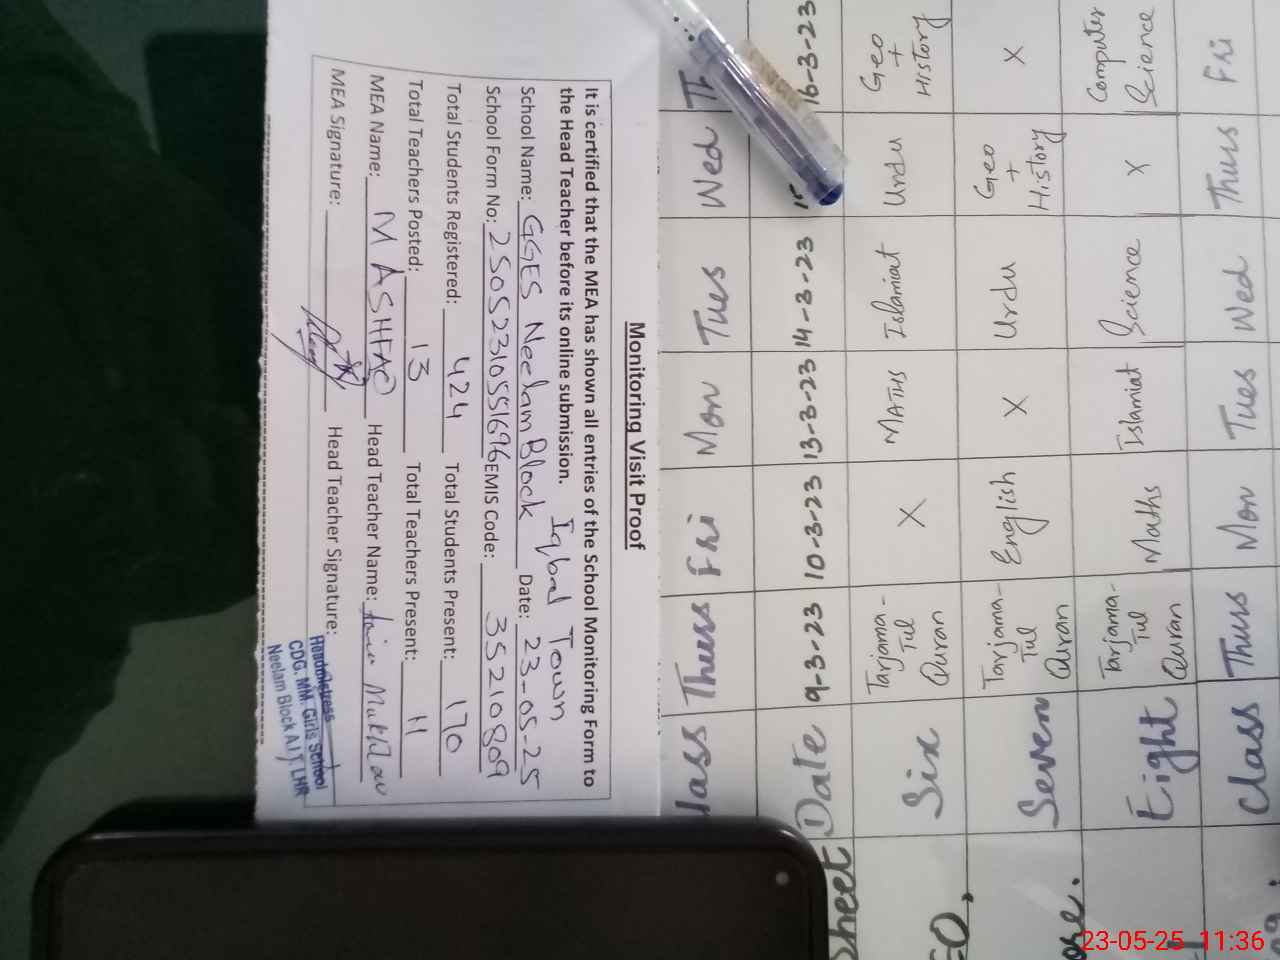 Monitoring Visit Proof
It is certified that the MEA has shown all entries of the School Monitoring Form to
the Head Teacher before its online submission. Iqbal Town
School Name: GGES Neelam Block Date: 23-05-25
School Form No: 25052310551696 EMIS Code: 35210809
Total Students Registered: 424 Total Students Present: 170
Total Teachers Posted: 13 Total Teachers Present: 11
MEA Name: M ASHFAQ Head Teacher Name:
MEA Signature: Head Teacher Signature:
Headmistress
CDG. MM. Girls School
Neelam Block A.I.T, LHR
lass Thurs Fri Mon Tues Wed
Date 9-3-23 10-3-23 13-3-23 14-3-23 16-3-23
Six Tarjama-Tul Quran X MATHS Islamiat Urdu Geo + History
Seven Tarjama-Tul Quran English X Urdu Geo + History X
Eight Tarjama-Tul Quran Maths Islamiat Science X Computer Science
Class Thurs Mon Tues Wed Thurs Fri
sheet
23-05-25 11:36